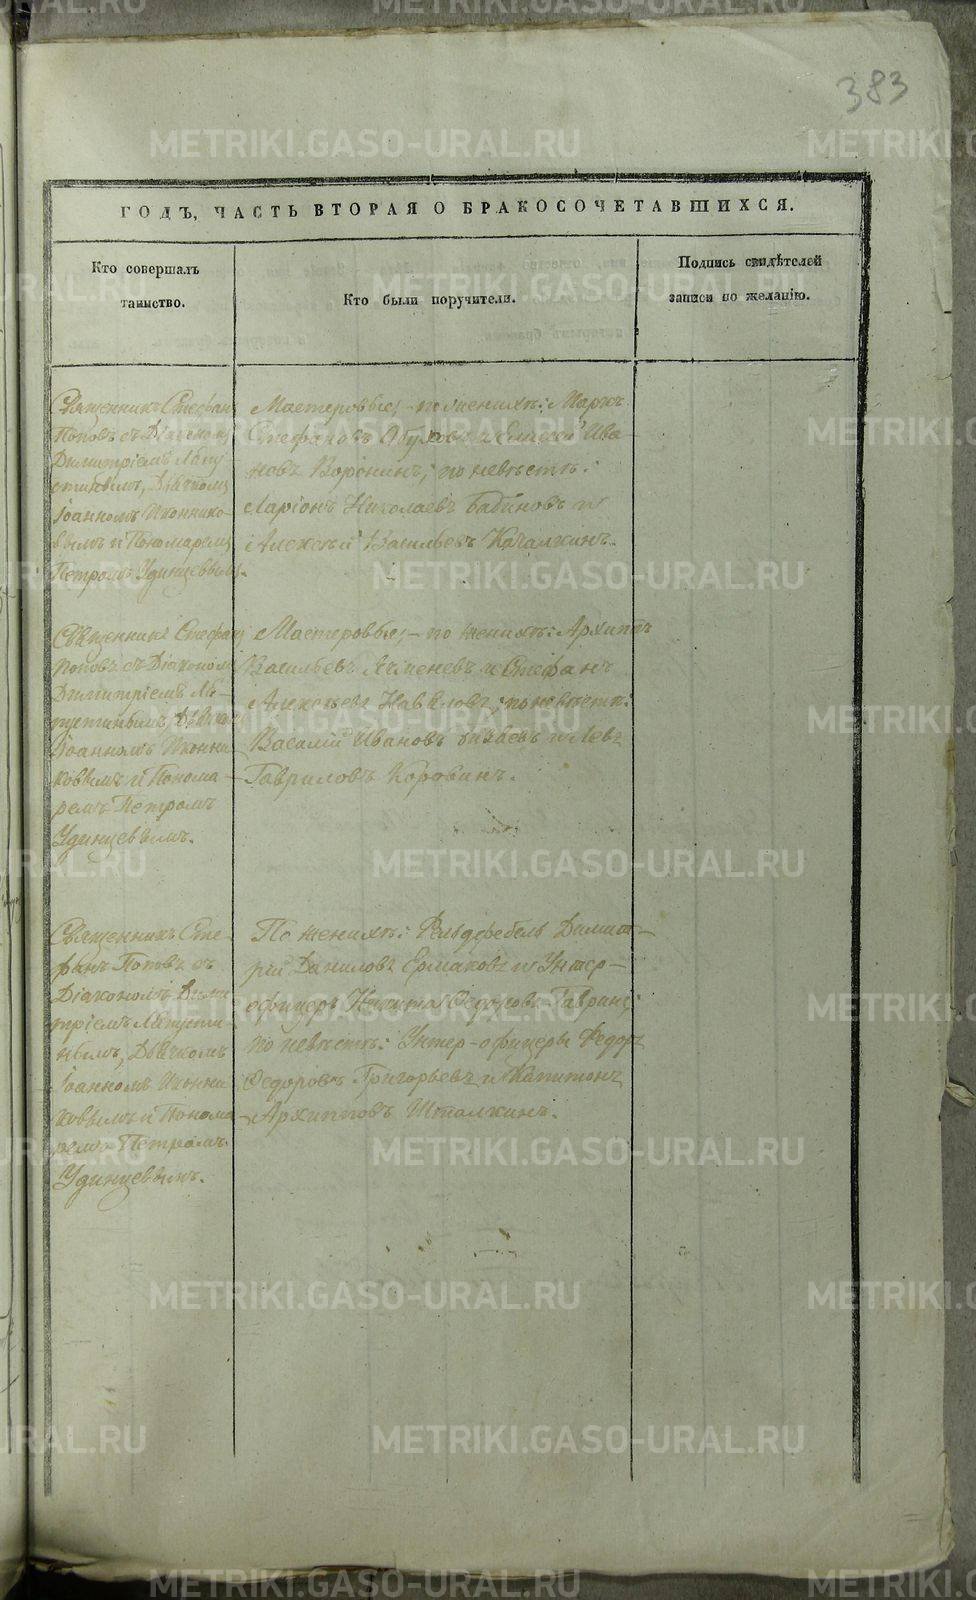 383
ГОДЪ, ЧАСТЬ ВТОРАЯ О БРАКОСОЧЕТАВШИХСЯ.
Кто совершалъ
таинство.
Кто были поручители.
Подпись свидѣтелей
записи по желанію.
Священникъ Стефанъ
Поповъ съ Діакономъ
Димитріемъ Лапу
стинымъ, Дьячкомъ
Іоанномъ Иконнико-
вымъ и Пономаремъ
Петромъ Удинцевымъ.
Мастеровые, - по женихѣ: Маркъ
Стефановъ Обуховъ и Елисей Ива
новъ Воронинъ; по невѣстѣ:
Ларіонъ Николаевъ Бабиновъ и
Алексѣй Васильевъ Качалкинъ.
Священникъ Стефанъ
Поповъ съ Діакономъ
Димитріемъ Ла-
пустинымъ, Дьячкомъ
Іоанномъ Иконни
ковымъ и Понома-
ремъ Петромъ
Удинцевымъ.
Мастеровые, - по женихѣ: Архипъ
Васильевъ и Стефанъ
Алексѣевъ по невѣстѣ:
Василій Ивановъ и Левъ
Гавриловъ Коровинъ.
Священникъ Сте-
фанъ Поповъ съ
Діакономъ Дими
тріемъ Лапусти-
нымъ, Дьячкомъ
Іоанномъ Иконни
ковымъ и Понома
ремъ Петромъ
Удинцевымъ.
По женихѣ: Фельдфебель Димит-
рій Даниловъ Ермаковъ и Унтер-
офицеръ Никита Ѳедоровъ Гавринъ;
по невѣстѣ: Унтер-офицеры Ѳедоръ
Ѳедоровъ Григорьевъ и Капитонъ
Архиповъ Шталкинъ.
METRIKI.GASO-URAL.RU